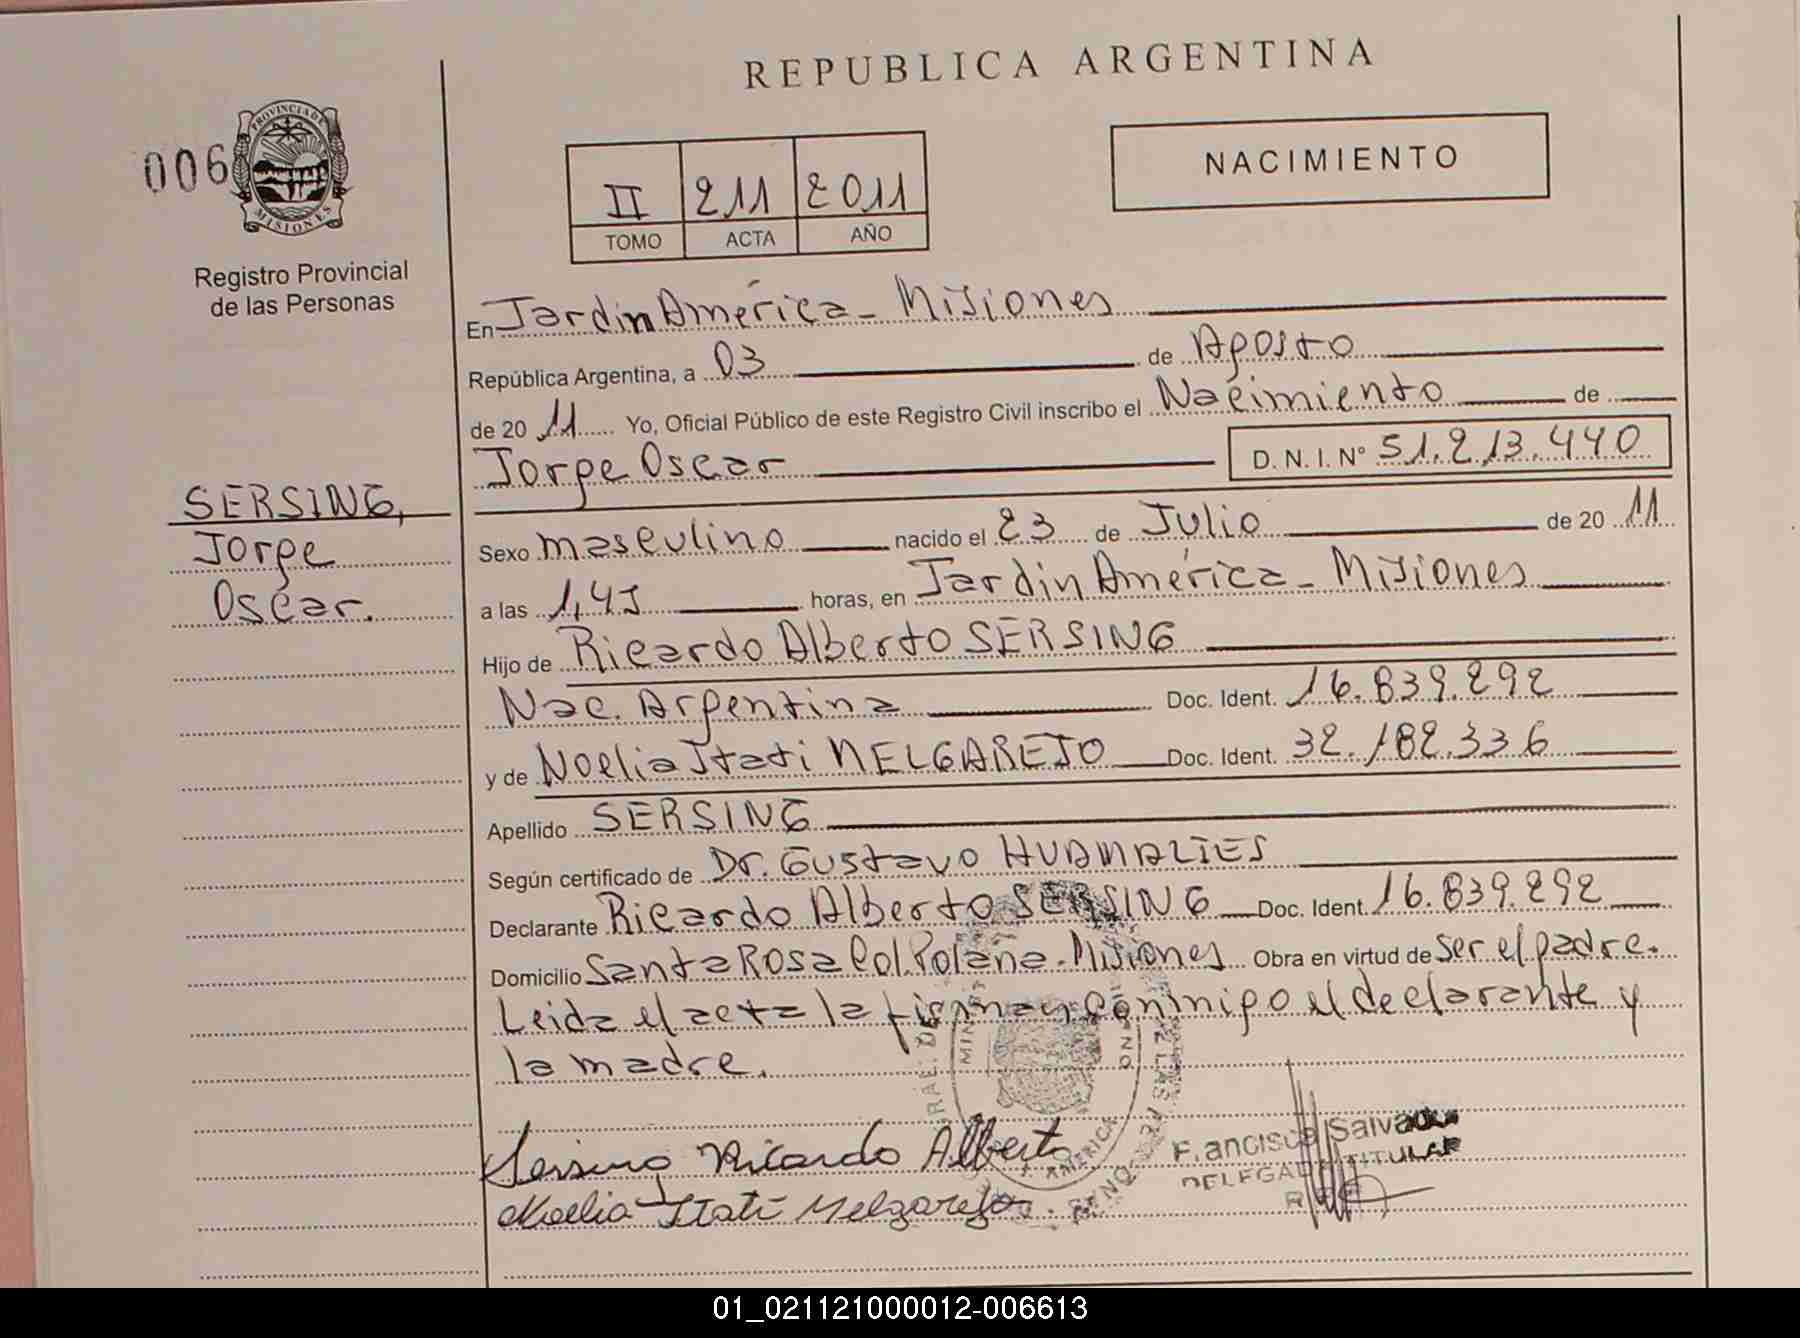 REPUBLICA ARGENTINA
006
PROVINCIA DE
MISIONES
Registro Provincial
de las Personas
II 211 2011
TOMO ACTA AÑO
NACIMIENTO
En Jardin América - Misiones
República Argentina, a 03 de Agosto
de 20 11 Yo, Oficial Público de este Registro Civil inscribo el Nacimiento de
Jorge Oscar D. N. I. Nº 51.213.440
SERSING,
Jorge
Oscar.
Sexo masculino nacido el 23 de Julio de 20 11
a las 1,45 horas, en Jardin América - Misiones
Hijo de Ricardo Alberto SERSING
Nac. Argentina Doc. Ident. 16.839.292
y de Noelia Itati MELGAREJO Doc. Ident. 32.182.336
Apellido SERSING
Según certificado de Dr. Gustavo HUAMALIES
Declarante Ricardo Alberto SERSING Doc. Ident. 16.839.292
Domicilio Santa Rosa Col. Polana - Misiones Obra en virtud de ser el padre.
Leida el acta la firman conmigo el declarante y
la madre.
Sersing Ricardo Alberto
Noelia Itati Melgarejo.
J. AMERICA
DELEGADO TITULAR
01_021121000012-006613